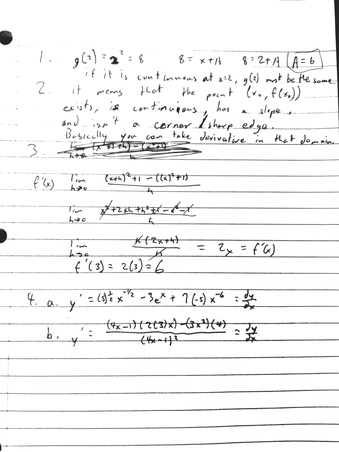 1. g(2) = 2³ = 8    8 = x+A    8 = 2+A    A = 6
if it is continuous at x=2, g(2) must be the same
2. it means that the point (x₀, f(x₀))
exists, is continuous, has a slope,
and isn't a corner / sharp edge.
Basically you can take derivative in that domain.
3.
f'(x) lim h→0 ((x+h)²+1 - ((x)²+1))/h
lim h→0 (x²+2xh+h²+1-x²-1)/h
lim h→0 h(2x+h)/h = 2x = f'(x)
f'(3) = 2(3) = 6
4. a. y' = (3)½ x^(-1/2) - 3e^x + 7(-5)x^(-6) = dy/dx
b. y' = ((4x-1)(2(3)x) - (3x²)(4))/(4x-1)² = dy/dx